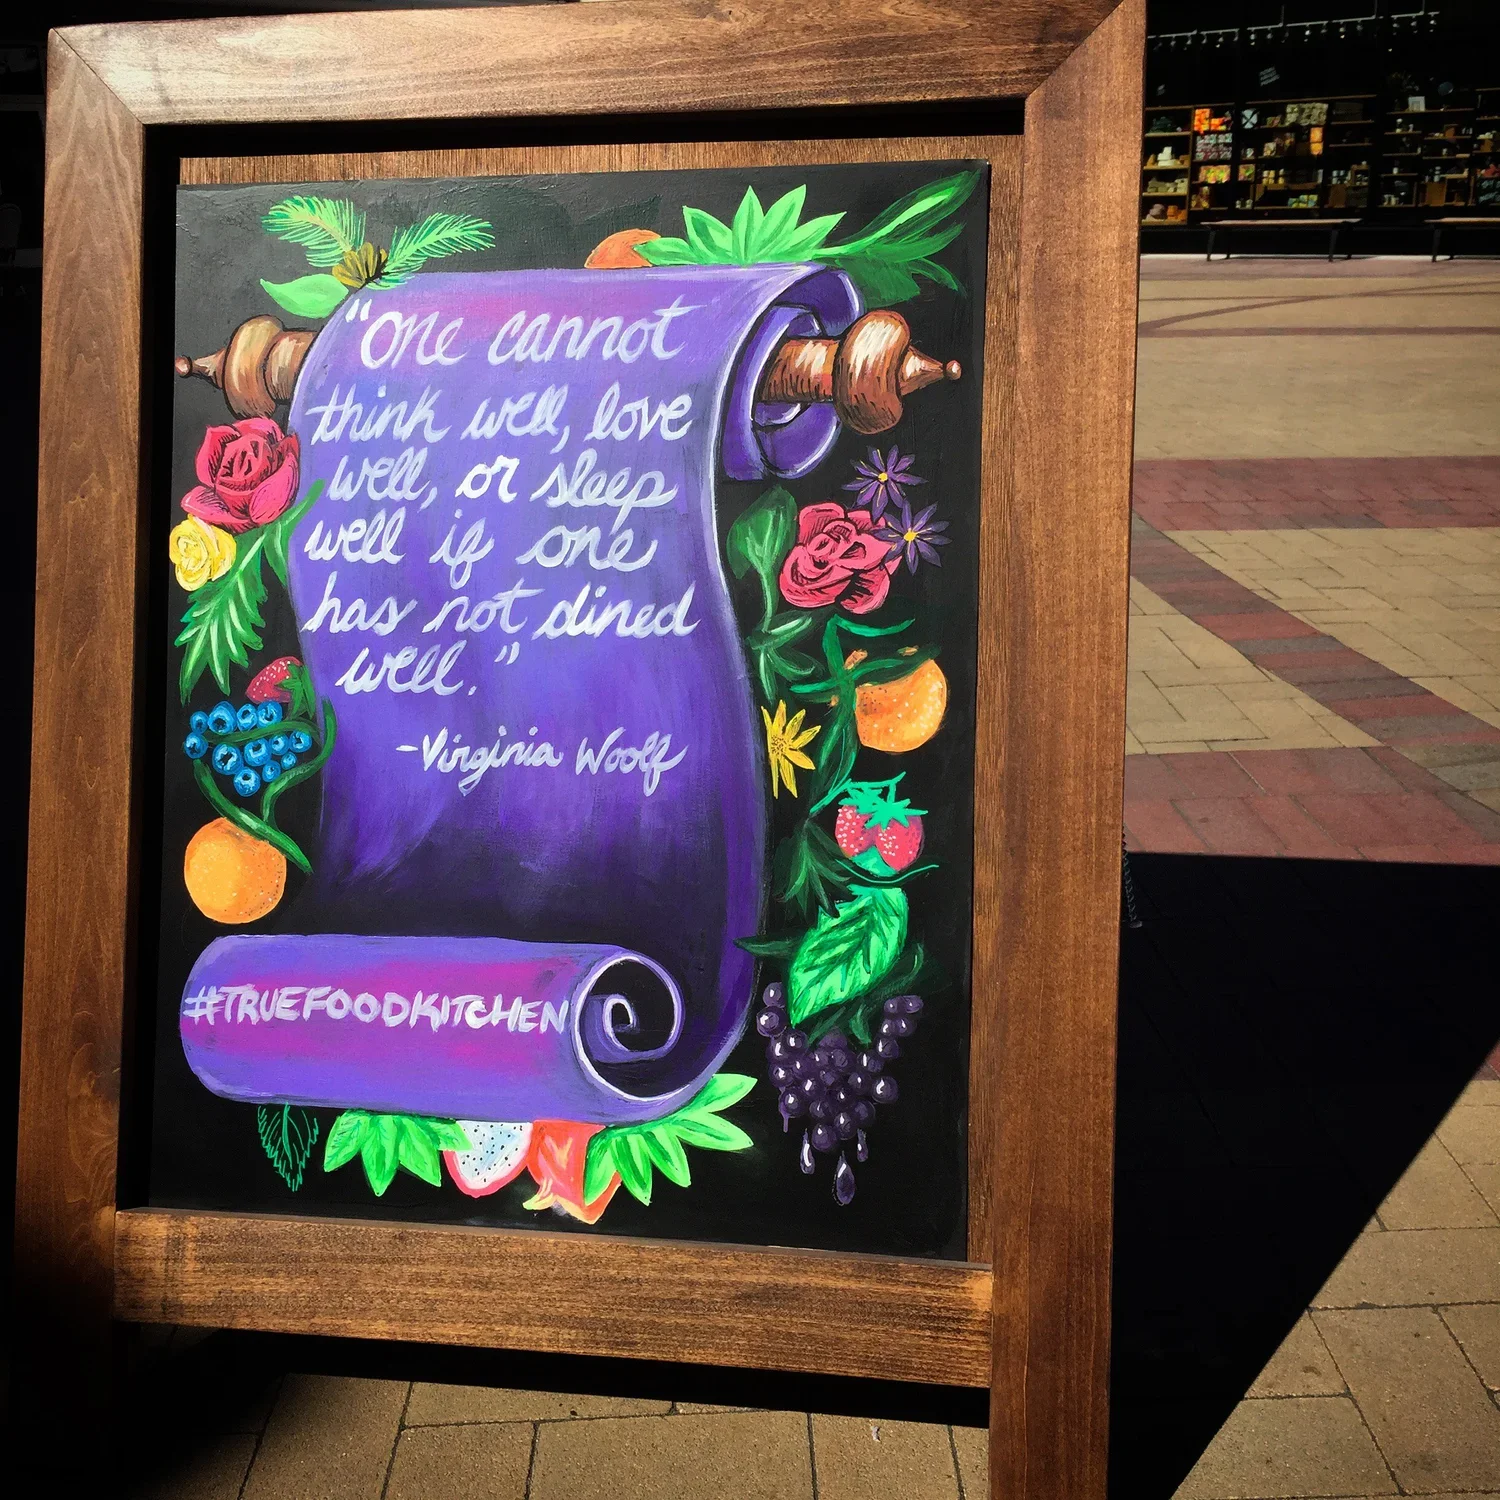 "One cannot
think well, love
well, or sleep
well if one
has not dined
well."
-Virginia Woolf
#TRUEFOODKITCHEN